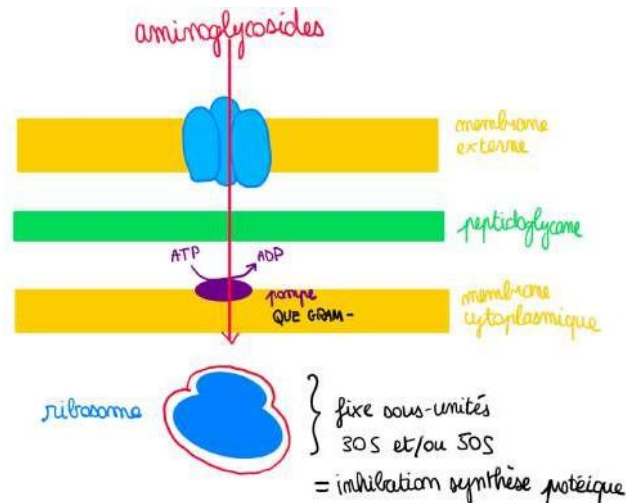 aminoglycosides
membrane
externe
peptidoglycane
ATP
ADP
pompe
QUE GRAM -
membrane
cytoplasmique
ribosome
fixe sous-unités
30S et/ou 50S
= inhibation synthèse protéique